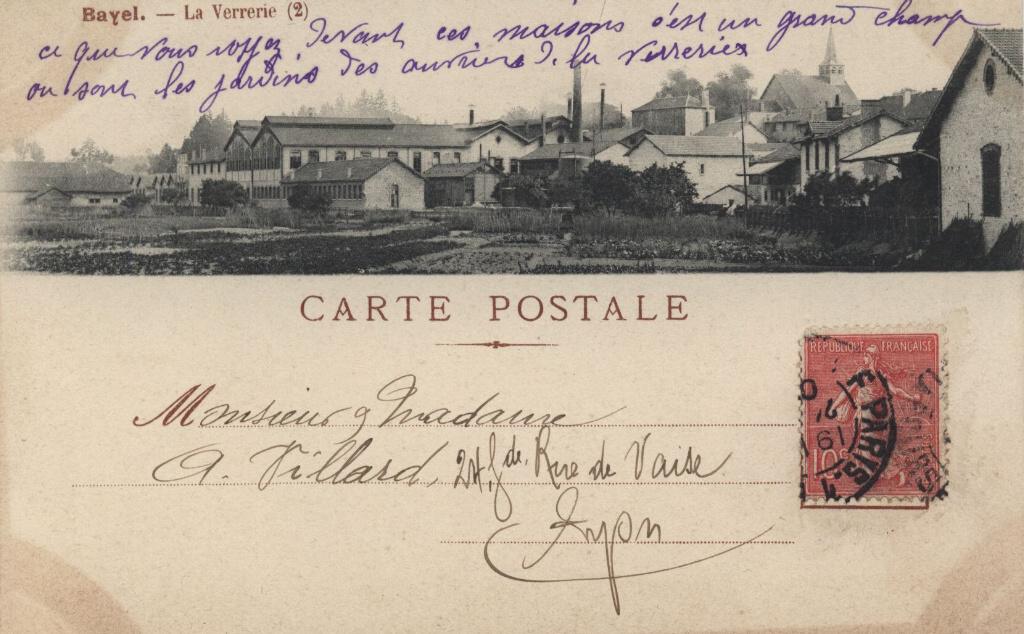 Bayel. — La Verrerie (2)
ce que vous voyez devant ces maisons c'est un grand champ
ou sont les jardins des ouvriers d. la verreries
CARTE POSTALE
Monsieur & Madame
A. Villard, 24, gde Rue de Vaise
Lyon
RÉPUBLIQUE FRANÇAISE
10c
PARIS